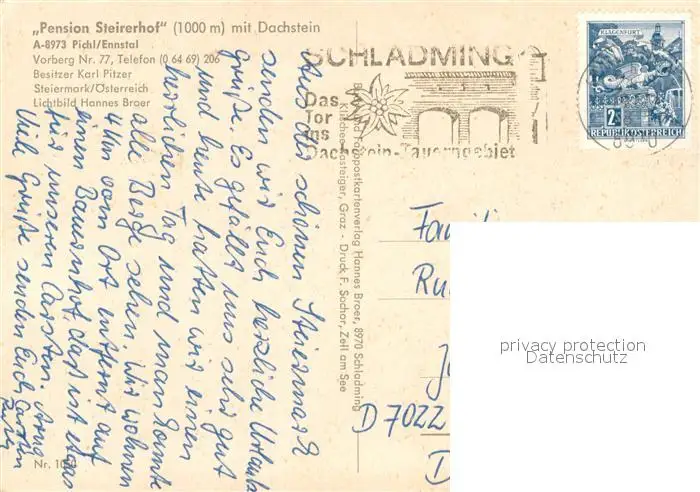 „Pension Steirerhof" (1000 m) mit Dachstein
A-8973 Pichl/Ennstal
Vorberg Nr. 77, Telefon (0 64 69) 206
Besitzer Karl Pitzer
Steiermark/Österreich
Lichtbild Hannes Broer
SCHLADMING
Das
Tor
ins
Dachstein-Tauerngebiet
KLAGENFURT
2
REPUBLIK ÖSTERREICH
Aus der schönen Steiermark
senden wir Euch herzliche Urlaubs
grüße. Es gefällt uns sehr gut
und heute hatten wir einen
herrlichen Tag und man konnte
alle Berge sehen. Wir wohnen
4 km vom Ort entfernt auf
einem Bauernhof, das ist etwas
für unseren Carsten.
Viele Grüße senden Euch
Fotopostkartenverlag Hannes Broer, 8970 Schladming
Graz - Druck F. Sochor, Zell am See
D 7022
D
Nr.
privacy protection
Datenschutz